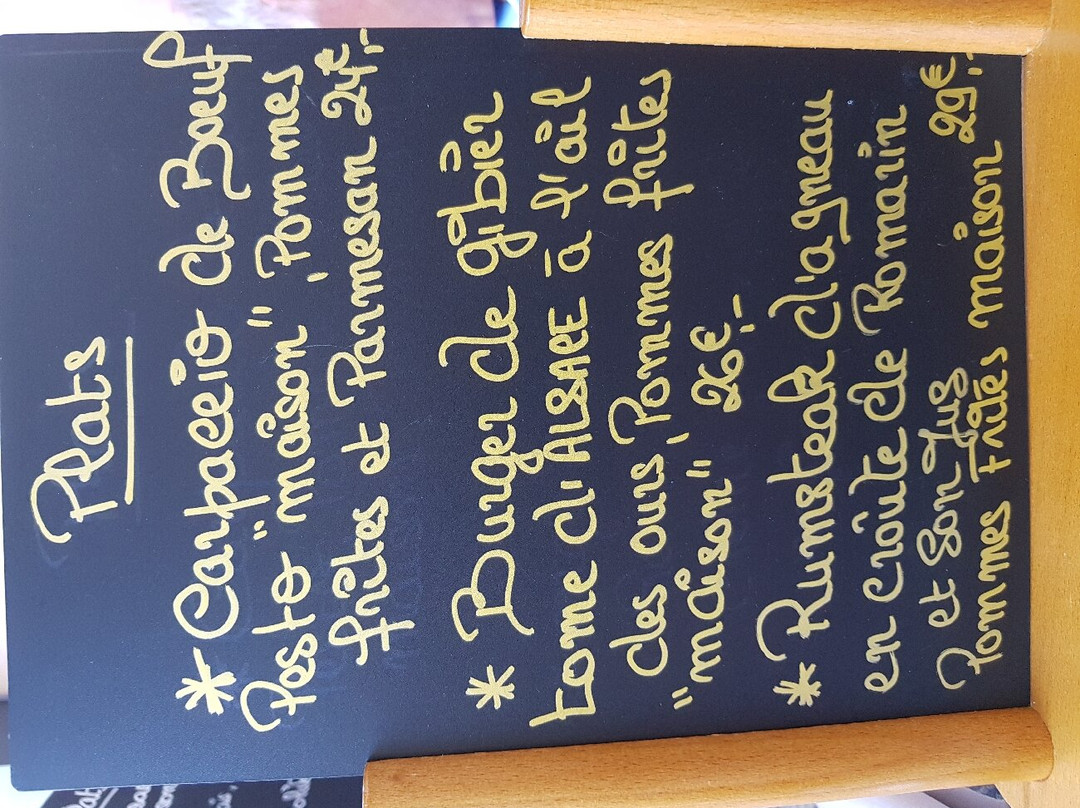 Plats
* Carpaccio de Boeuf
Pesto "maison", Pommes
frites et Parmesan 24€.-
* Burger de gibier
tome d'ALSACE à l'ail
des ours, Pommes frites
"maison" 26€.-
* Rumsteak d'agneau
en croûte de Romarin
et son Jus
Pommes frites maison 29€.-